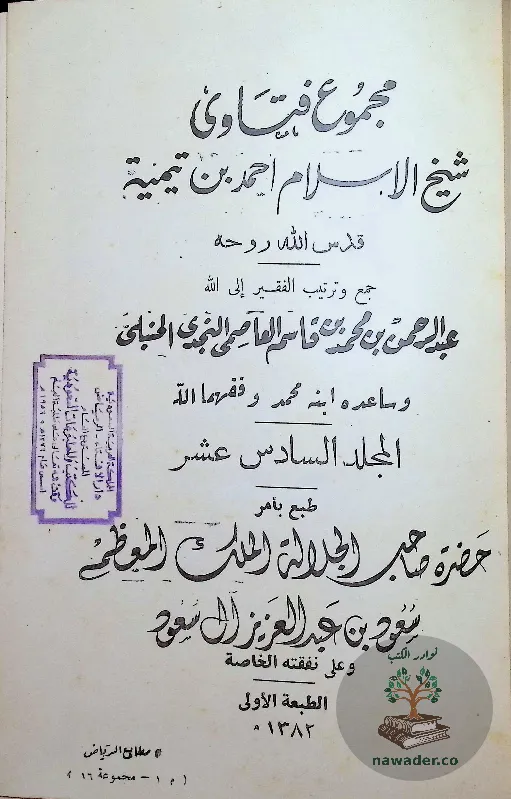 مجموع فتاوى
شيخ الإسلام أحمد بن تيمية
قدس الله روحه
جمع وترتيب الفقير إلى الله
عبد الرحمن بن محمد بن قاسم العاصمي النجدي الحنبلي
وساعده ابنه محمد وفقهما الله
المجلد السادس عشر
طبع بأمر
حضرة صاحب الجلالة الملك المعظم
سعود بن عبد العزيز آل سعود
وعلى نفقته الخاصة
الطبعة الأولى
١٣٨٢ هـ
مطابع الرياض
( م ١ - مجموعة ١٦ )
المملكة العربية السعودية
نوادر الكتب
nawader.co